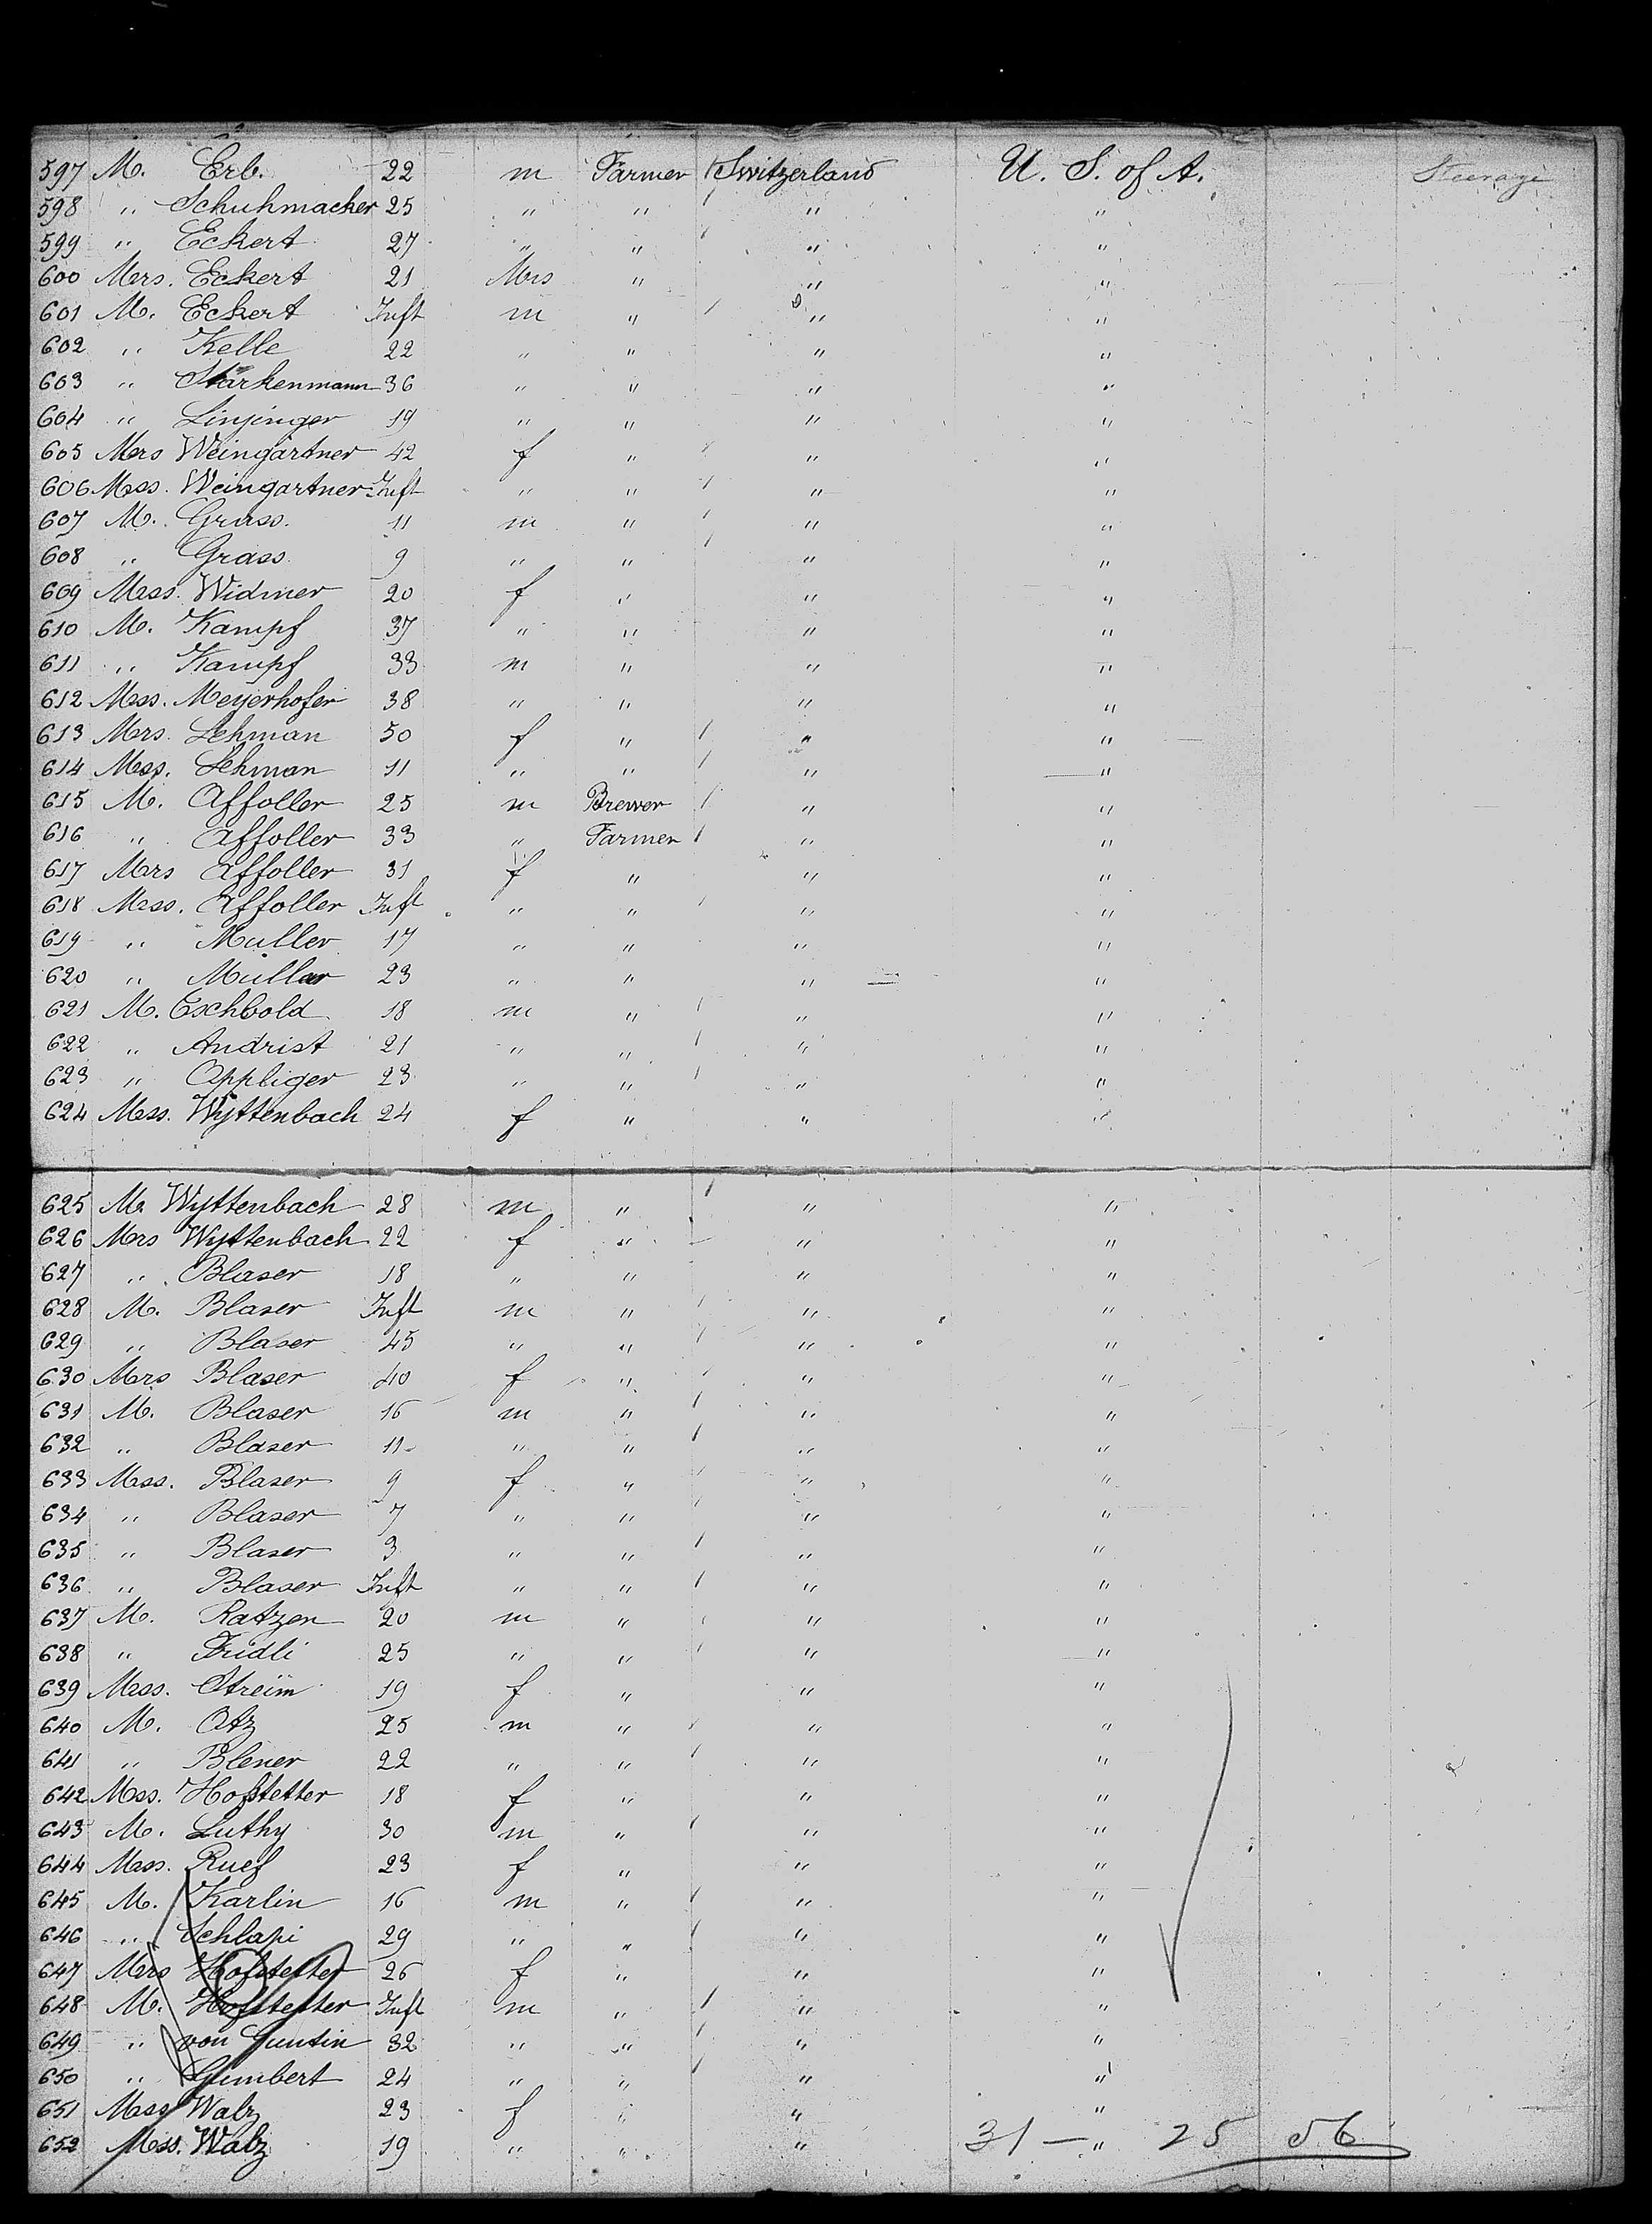 597 M. Erb. 22 m Farmer Switzerland U. S. of A. Steerage
598 " Schuhmacher 25 " " " "
599 " Eckert 27 " " " "
600 Mrs. Eckert 21 Mrs " " "
601 M. Eckert Inft m " " "
602 " Kelle 22 " " " "
603 " Starkenmann 36 " " " "
604 " Linjinger 19 " " " "
605 Mrs Weingartner 42 f " " "
606 Mss. Weingartner Inft " " " "
607 M. Grass. 11 m " " "
608 " Grass 9 " " " "
609 Mss. Widmer 20 f " " "
610 M. Kampf 37 " " " "
611 " Kampf 33 m " " "
612 Mss. Meyerhofer 38 " " " "
613 Mrs. Lehman 50 f " " "
614 Mss. Lehman 11 " " " "
615 M. Affolter 25 m Brewer " "
616 " Affolter 33 " Farmer " "
617 Mrs Affolter 31 f " " "
618 Mss. Affolter Inft " " " "
619 " Muller 17 " " " "
620 " Muller 23 " " " "
621 M. Eschbold 18 m " " "
622 " Andrist 21 " " " "
623 " Appliger 23 " " " "
624 Mss. Wyttenbach 24 f " " "
625 M. Wyttenbach 28 m " " "
626 Mrs Wyttenbach 22 f " " "
627 " Blaser 18 " " " "
628 M. Blaser Inft m " " "
629 " Blaser 45 " " " "
630 Mrs Blaser 40 f " " "
631 M. Blaser 16 m " " "
632 " Blaser 11 " " " "
633 Mss. Blaser 9 f " " "
634 " Blaser 7 " " " "
635 " Blaser 3 " " " "
636 " Blaser Inft " " " "
637 M. Ratzen 20 m " " "
638 " Fridli 25 " " " "
639 Mss. 19 f " " "
640 M. Otz 25 m " " "
641 " Blener 22 " " " "
642 Mss. Hofstetter 18 f " " "
643 M. Luthy 30 m " " "
644 Mss. Ruef 23 f " " "
645 M. Karlin 16 m " " "
646 " Schlapi 29 " " " "
647 Mrs Hofstetter 26 f " " "
648 M. Hofstetter Inft m " " "
649 " von Guntin 32 " " " "
650 " Gumbert 24 " " " "
651 Mss Walz 23 f " " "
652 Mss. Walz 19 " " " "
31 — 25 56